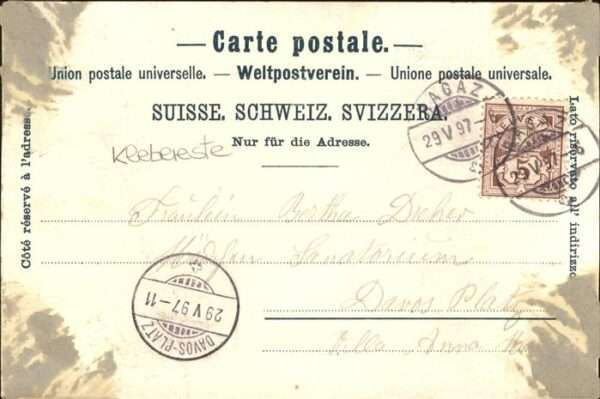 — Carte postale. —
Union postale universelle. — Weltpostverein. — Unione postale universale.
SUISSE. SCHWEIZ. SVIZZERA.
Nur für die Adresse.
Klebereste
Côté réservé à l'adresse.
Lato riservato all' indirizzo
RAGAZ
29 V 97
5
Fräulein Bertha Dreher
Sanatorium
Davos Platz
Villa Anna
29 V 97–11
DAVOS-PLATZ